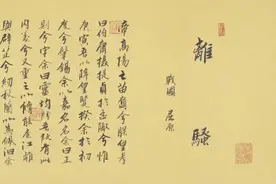 離騷
戰國 屈原
帝高陽之苗裔兮朕皇考
曰伯庸攝提貞于孟陬兮惟
庚寅吾以降皇覽揆余於初
度兮肇錫余以嘉名名余曰正
則兮字余曰靈均紛吾既有此
內美兮又重之以脩能扈江離
與辟芷兮紉秋蘭以為佩汩余